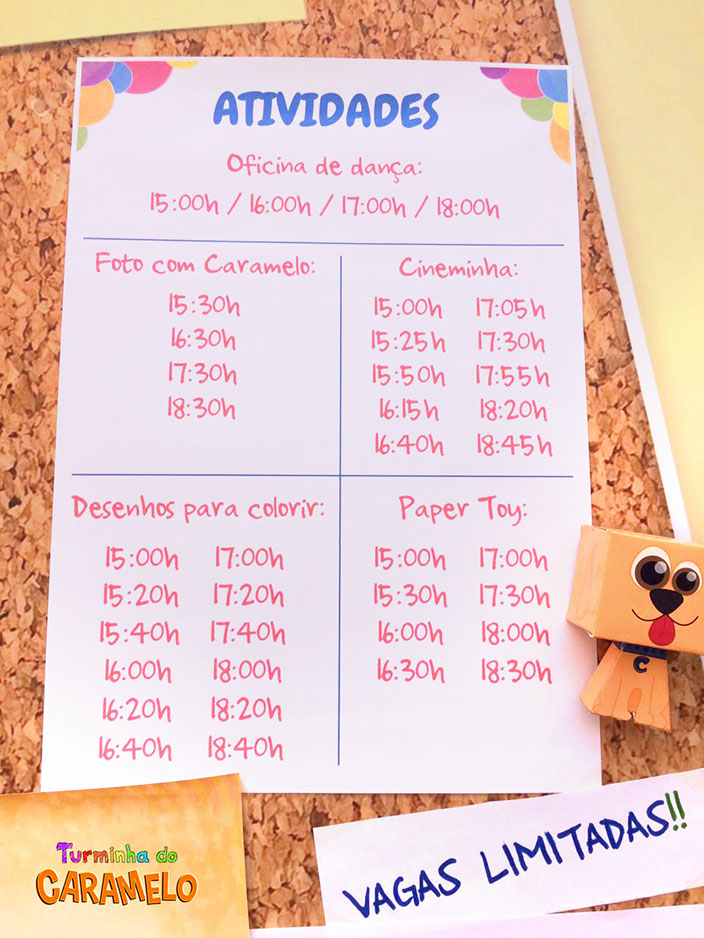 ATIVIDADES
Oficina de dança:
15:00h / 16:00h / 17:00h / 18:00h
Foto com Caramelo:
15:30h
16:30h
17:30h
18:30h
Cineminha:
15:00h 17:05h
15:25h 17:30h
15:50h 17:55h
16:15h 18:20h
16:40h 18:45h
Desenhos para colorir:
15:00h 17:00h
15:20h 17:20h
15:40h 17:40h
16:00h 18:00h
16:20h 18:20h
16:40h 18:40h
Paper Toy:
15:00h 17:00h
15:30h 17:30h
16:00h 18:00h
16:30h 18:30h
C
Turminha do
CARAMELO
VAGAS LIMITADAS!!